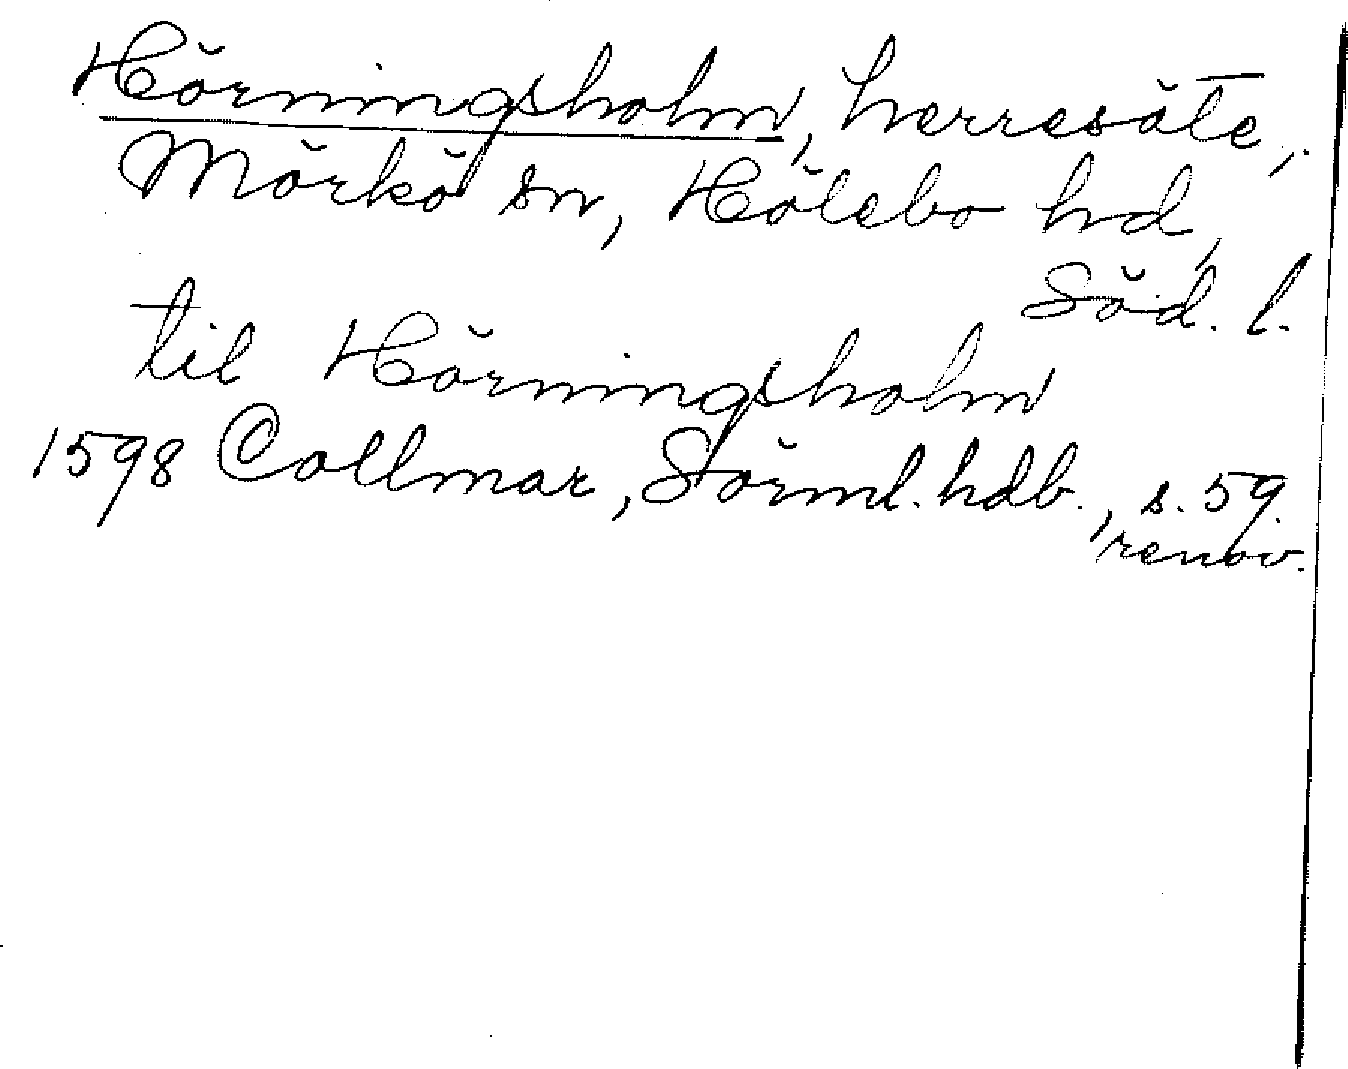 Hörningsholm, herresäte,
Mörkö sn, Hölebo hd,
Söd. l.
til Hörningsholm
1598 Collmar, Sörml. hdb., s. 59.
renov.